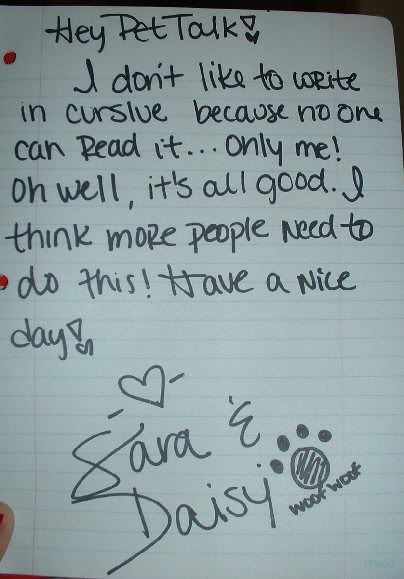 Hey PetTalk!
I don't like to write
in cursive because no one
can Read it... only me!
Oh well, it's all good. I
think more people Need to
do this! Have a Nice
day!
Sara &
Daisy
woof woof